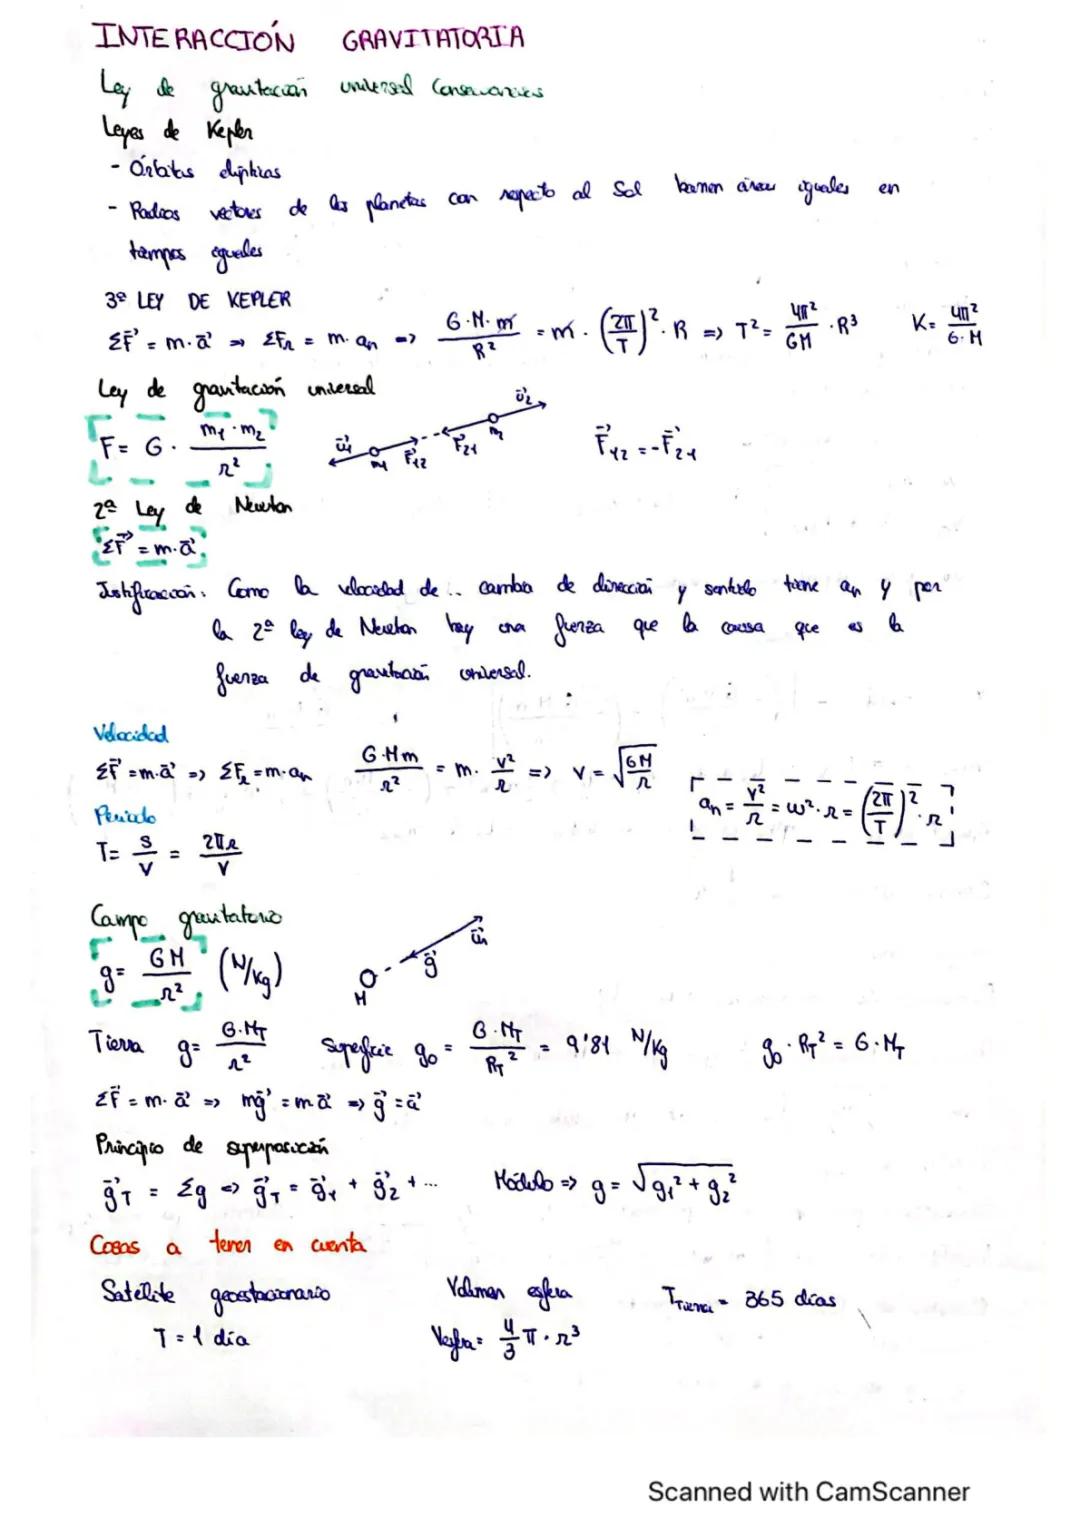 INTERACCIÓN GRAVITATORIA
Ley de gravitación universal
Leyes de Kepler
- Órbitas elípticas
- Radios vectores de los planetas con respecto al Sol barren áreas iguales en
tiempos iguales
3ª LEY DE KEPLER
ΣF⃗ = m·a⃗ => ΣFₙ = m·aₙ => G·M·m/R² = m·(2π/T)²·R => T² = 4π²/GM ·R³ K = 4π²/G·M
Ley de gravitación universal
F = G· m₁·m₂/r² u⃗₁ m₁ F⃗₁₂ F⃗₂₁ m₂ u⃗₂ F⃗₁₂ = -F⃗₂₁
2ª Ley de Newton
ΣF⃗ = m·a⃗
Justificación: Como la velocidad de ... cambia de dirección y sentido tiene aₙ y por
la 2ª ley de Newton hay una fuerza que la causa que es la
fuerza de gravitación universal.
Velocidad
ΣF⃗ = m·a⃗ => ΣFₙ = m·aₙ G·Mm/r² = m·v²/r => v = √(GM/r)
aₙ = v²/r = ω²·r = (2π/T)²·r
Periodo
T = s/v = 2πr/v
Campo gravitatorio
g = GM/r² (N/kg) M g⃗ u⃗r
Tierra g = G·M_T/r² Superficie g₀ = G·M_T/R_T² = 9'81 N/kg g₀·R_T² = G·M_T
ΣF⃗ = m·a⃗ => mg⃗ = ma⃗ => g⃗ = a⃗
Principio de superposición
g⃗_T = Σg => g⃗_T = g⃗₁ + g⃗₂ + ... Módulo => g = √(g₁² + g₂²)
Cosas a tener en cuenta
Satélite geoestacionario Volumen esfera T_Tierra = 365 días
T = 1 día Vesfera = 4/3 π·r³
Scanned with CamScanner